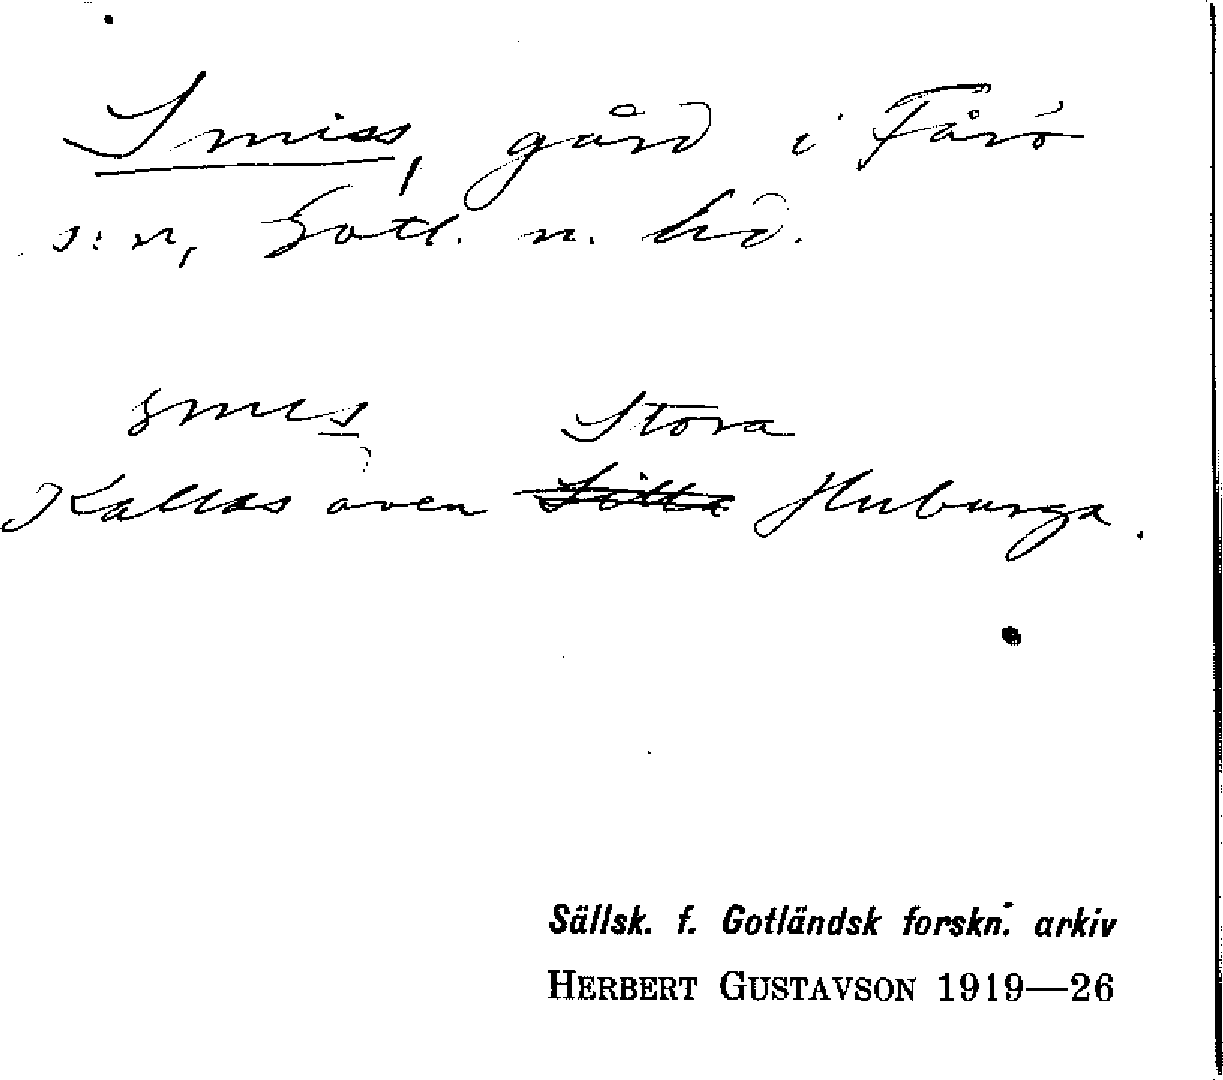 Smiss, gård i Fårö
s:n, Gotl. n. hd.
smis Stora
Kallas även Lilla Huburga.
Sällsk. f. Gotländsk forskn. arkiv
HERBERT GUSTAVSON 1919—26